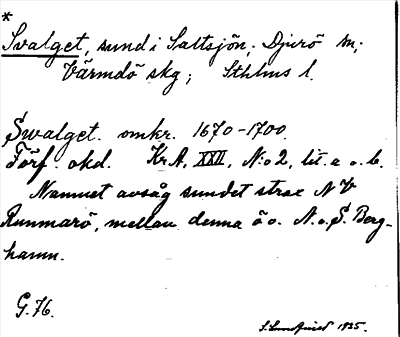 *
Svalget, sund i Saltsjön; Djurö sn;
Värmdö skg; Sthlms l.
Swalget. omkr. 1670-1700.
Förf. okd. Kr.A. XXII, N:o 2, lit. a o. b.
Namnet avsåg sundet strax NV
Runmarö, mellan denna ö o. N. o. S. Berg-
hamn.
G. 76.
1925.